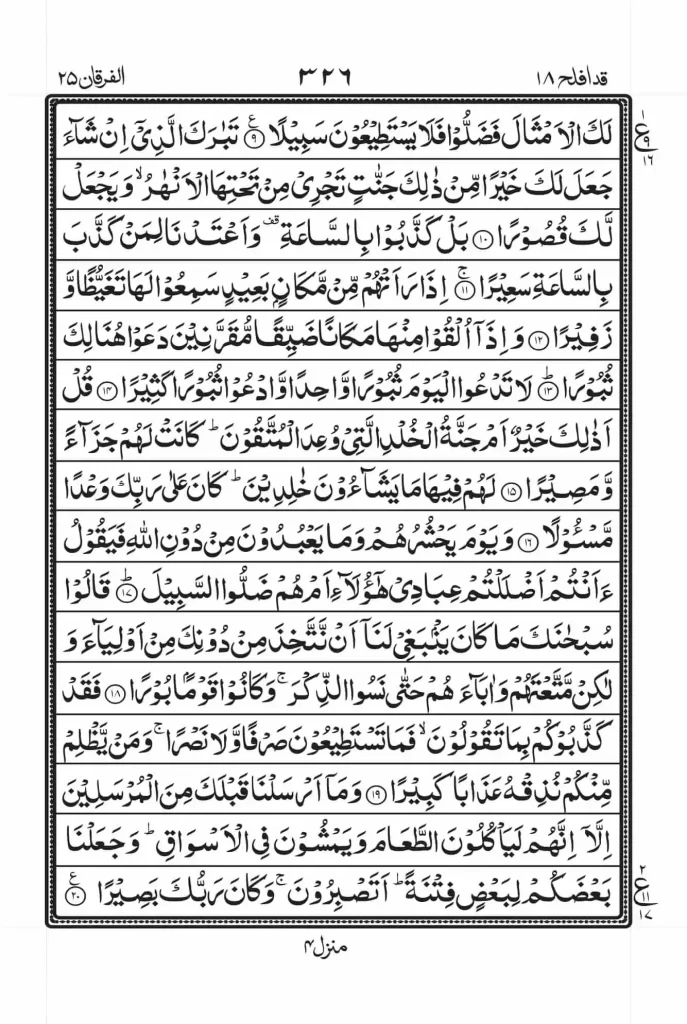 قد افلح ١٨
٣٢٦
الفرقان ٢٥
لَكَ الۡاَمۡثَالَ فَضَلُّوۡا فَلَا يَسۡتَطِيۡعُوۡنَ سَبِيۡلًا ۧ‏ ﴿۹﴾ تَبٰرَكَ الَّذِىۡۤ اِنۡ شَآءَ
جَعَلَ لَكَ خَيۡرًا مِّنۡ ذٰ لِكَ جَنّٰتٍ تَجۡرِىۡ مِنۡ تَحۡتِهَا الۡاَنۡهٰرُ ۙ وَيَجۡعَلْ
لَّكَ قُصُوۡرًا‏ ﴿۱۰﴾ بَلۡ كَذَّبُوۡا بِالسَّاعَةِ‌ ࣞ وَاَعۡتَدۡنَا لِمَنۡ كَذَّبَ
بِالسَّاعَةِ سَعِيۡرًا‌ ۚ‏ ﴿۱۱﴾ اِذَا رَاَتۡهُمۡ مِّنۡ مَّكَانٍۢ بَعِيۡدٍ سَمِعُوۡا لَهَا تَغَيُّظًا وَّ
زَفِيۡرًا‏ ﴿۱۲﴾ وَاِذَاۤ اُلۡقُوۡا مِنۡهَا مَكَانًا ضَيِّقًا مُّقَرَّنِيۡنَ دَعَوۡا هُنَالِكَ
ثُبُوۡرًا ؕ‏ ﴿۱۳﴾ لَا تَدۡعُوا الۡيَوۡمَ ثُبُوۡرًا وَّاحِدًا وَّادۡعُوۡا ثُبُوۡرًا كَثِيۡرًا‏ ﴿۱۴﴾ قُلۡ
اَذٰ لِكَ خَيۡرٌ اَمۡ جَنَّةُ الۡخُـلۡدِ الَّتِىۡ وُعِدَ الۡمُتَّقُوۡنَ‌ ؕ كَانَتۡ لَهُمۡ جَزَآءً
وَّمَصِيۡرًا‏ ﴿۱۵﴾ لَهُمۡ فِيۡهَا مَا يَشَآءُوۡنَ خٰلِدِيۡنَ‌ ؕ كَانَ عَلٰى رَبِّكَ وَعۡدًا
مَّسۡـُٔوۡلًا‏ ﴿۱۶﴾ وَيَوۡمَ يَحۡشُرُهُمۡ وَمَا يَعۡبُدُوۡنَ مِنۡ دُوۡنِ اللّٰهِ فَيَقُوۡلُ
ءَاَنۡـتُمۡ اَضۡلَلۡـتُمۡ عِبَادِىۡ هٰٓؤُلَآءِ اَمۡ هُمۡ ضَلُّوا السَّبِيۡلَ ؕ‏ ﴿۱۷﴾ قَالُوۡا
سُبۡحٰنَكَ مَا كَانَ يَنۡۢبَغِىۡ لَنَاۤ اَنۡ نَّـتَّخِذَ مِنۡ دُوۡنِكَ مِنۡ اَوۡلِيَآءَ وَ
لٰـكِنۡ مَّتَّعۡتَهُمۡ وَاٰبَآءَهُمۡ حَتّٰى نَسُوا الذِّكۡرَ‌ ۚ وَكَانُوۡا قَوۡمًۢا بُوۡرًا‏ ﴿۱۸﴾ فَقَدۡ
كَذَّبُوۡكُمۡ بِمَا تَقُوۡلُوۡنَ ۙ فَمَا تَسۡتَطِيۡعُوۡنَ صَرۡفًا وَّلَا نَـصۡرًا‌ ۚ وَمَنۡ يَّظۡلِمۡ
مِّنۡكُمۡ نُذِقۡهُ عَذَابًا كَبِيۡرًا‏ ﴿۱۹﴾ وَمَاۤ اَرۡسَلۡنَا قَبۡلَكَ مِنَ الۡمُرۡسَلِيۡنَ
اِلَّاۤ اِنَّهُمۡ لَيَاۡكُلُوۡنَ الطَّعَامَ وَيَمۡشُوۡنَ فِى الۡاَسۡوَاقِ‌ ؕ وَجَعَلۡنَا
بَعۡضَكُمۡ لِبَعۡضٍ فِتۡنَةً ؕ اَتَصۡبِرُوۡنَ‌ۚ وَكَانَ رَبُّكَ بَصِيۡرًا ۧ‏ ﴿۲۰﴾
ع ١ ٩ ١٦
ع ٢ ١١ ١٧
منزل ٤